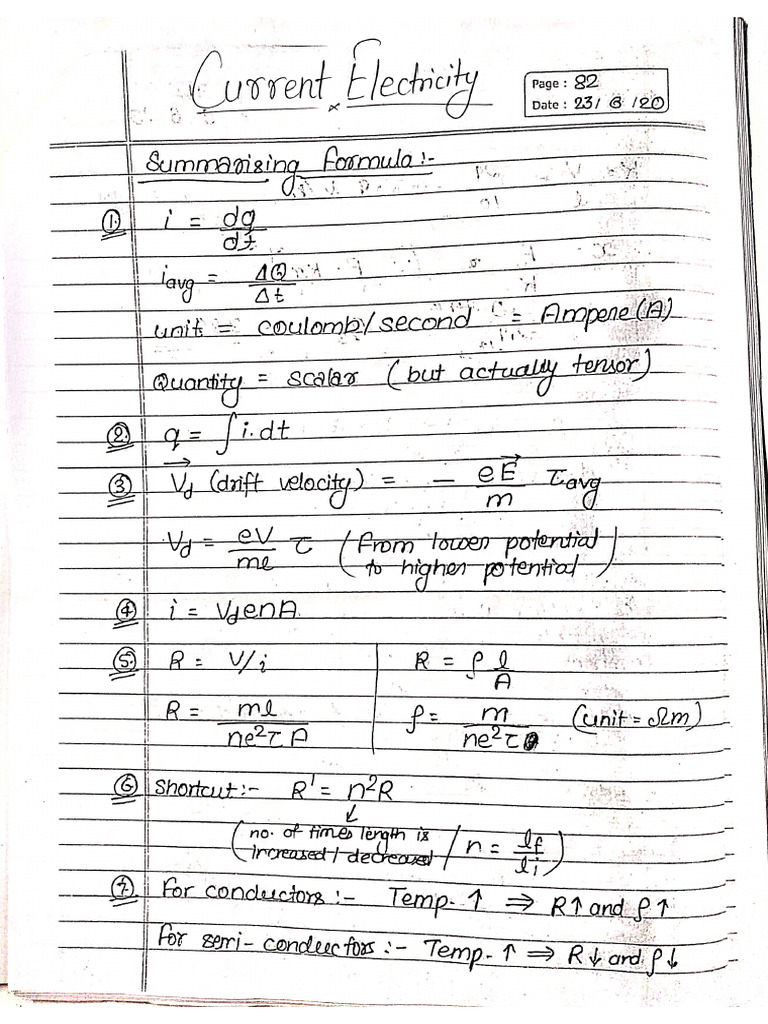 Current Electricity
Page : 82
Date : 23/ 6 /20
Summarising formula:-
① i = dq/dt
i avg = ΔQ/Δt
unit = coulomb/second = Ampere(A)
Quantity = scalar (but actually tensor)
② q = ∫i.dt
③ V⃗d (drift velocity) = - eE⃗/m τavg
Vd = eV/ml τ (From lower potential
to higher potential)
④ i = VdenA
⑤ R = V/i
R = ρ l/A
R = ml/ne²τA
ρ = m/ne²τ (unit = Ωm)
⑥ Shortcut:- R' = n²R
↓
(no. of times length is
increased/decreased / n = lf/li)
⑦ For conductors :- Temp. ↑ ⇒ R↑ and ρ↑
For semi-conductors :- Temp. ↑ ⇒ R↓ and ρ↓